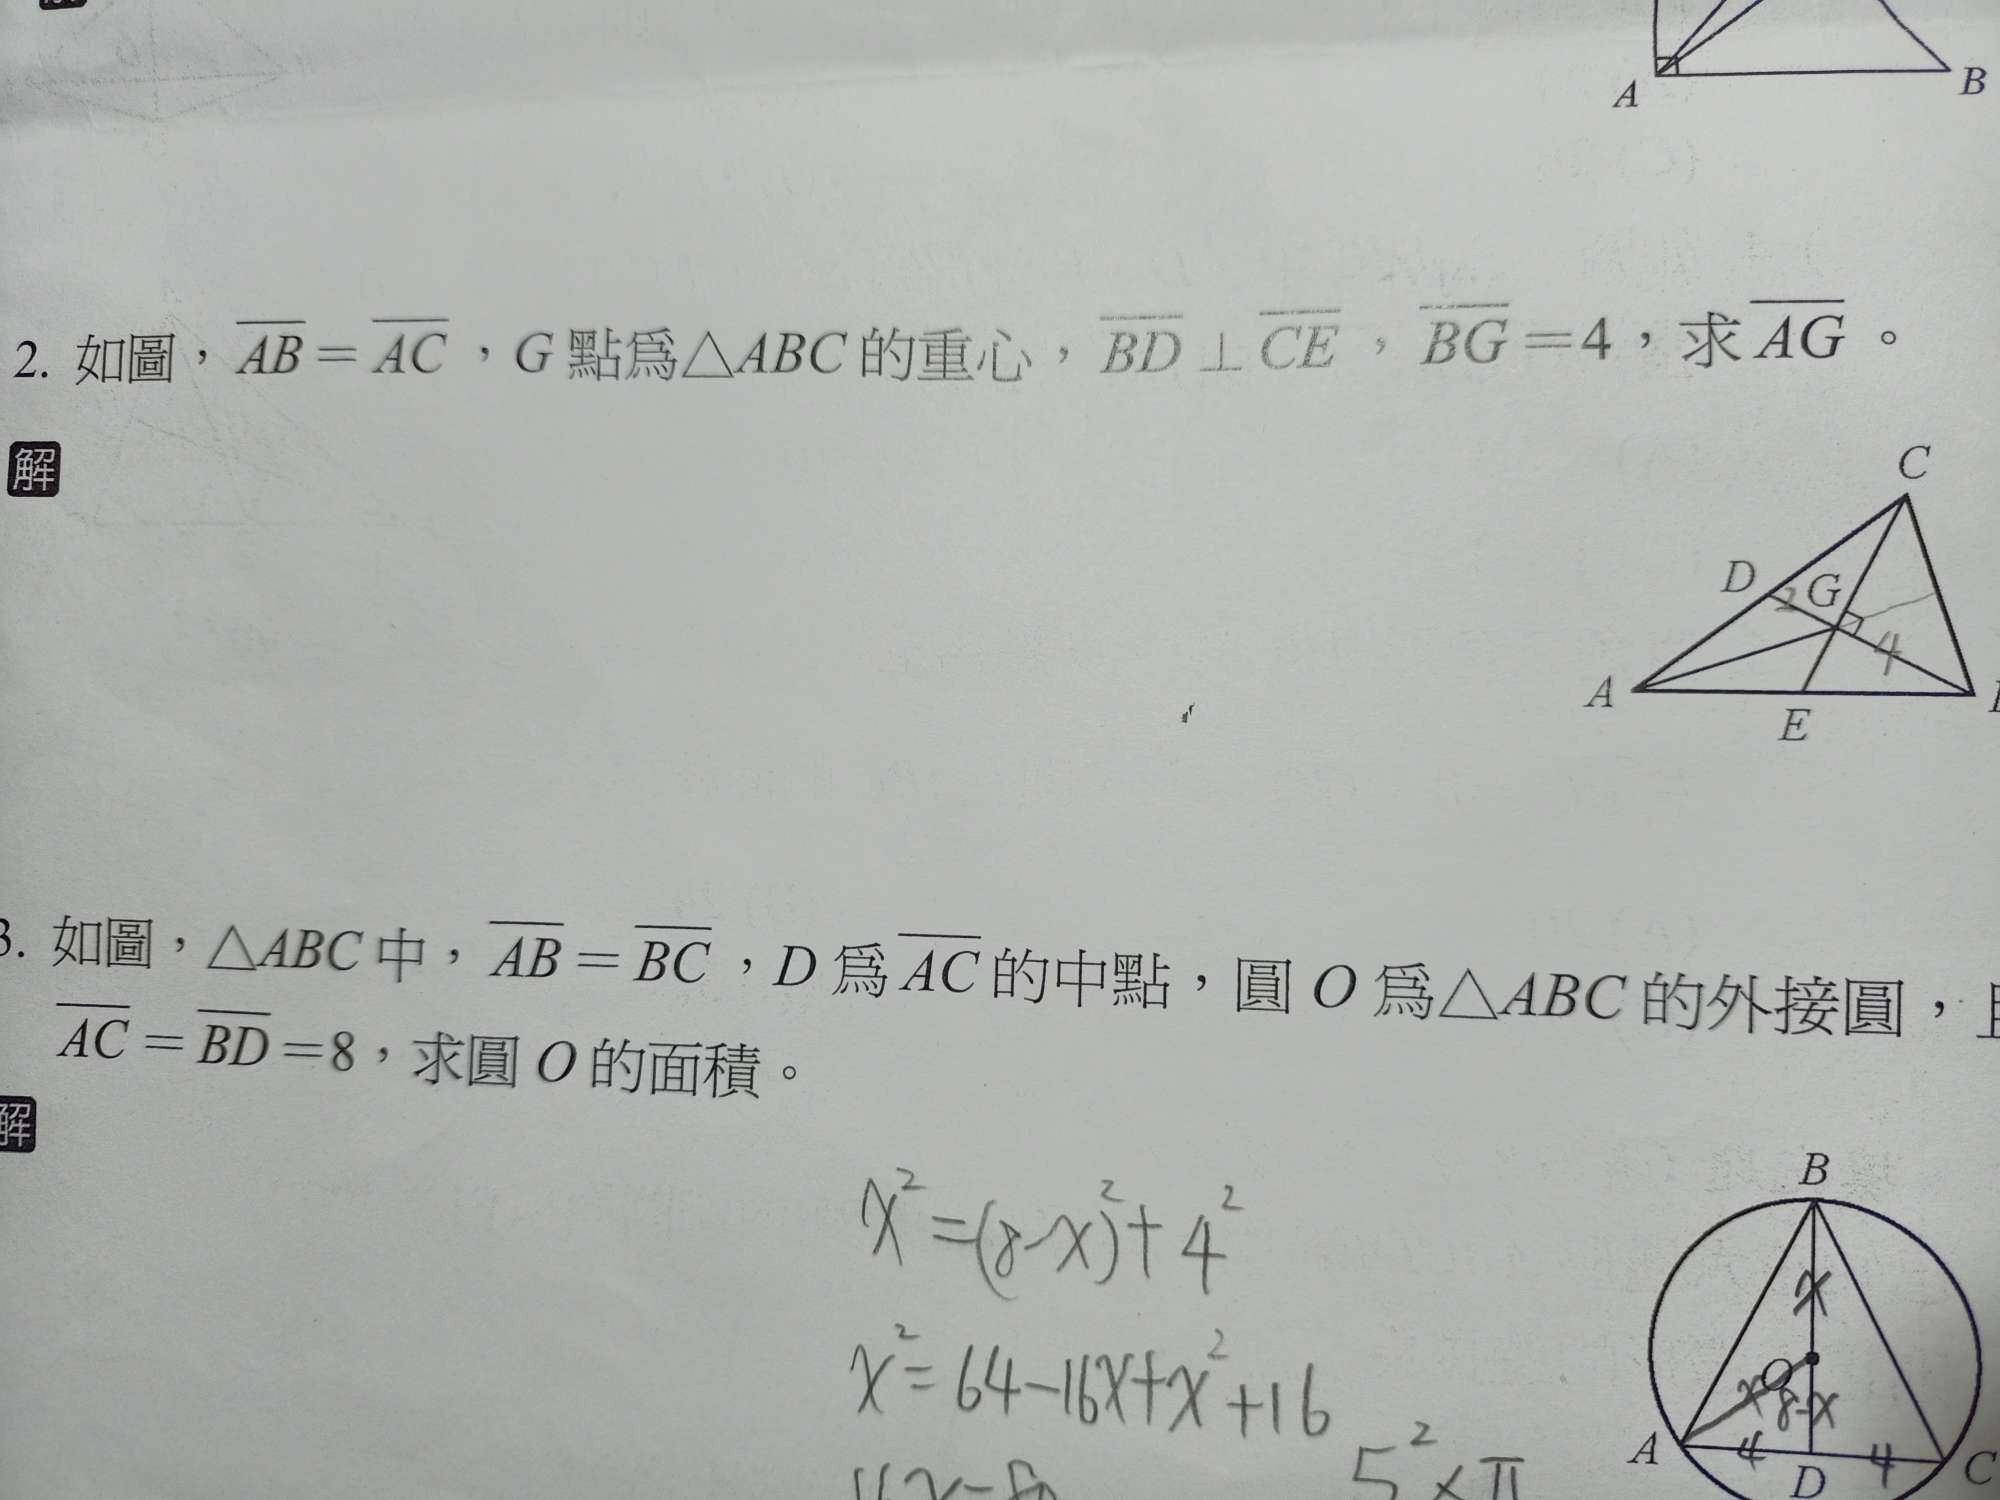 A
B
2. 如圖，AB＝AC，G 點為△ABC 的重心，BD⊥CE，BG＝4，求 AG。
解
C
D
2
G
4
A
E
3. 如圖，△ABC 中，AB＝BC，D 為 AC 的中點，圓 O 為△ABC 的外接圓，
AC＝BD＝8，求圓 O 的面積。
解
B
x²=(8-x)²+4²
x
x²=64-16x+x²+16
O
x
8-x
A
4
4
C
D
5²×π